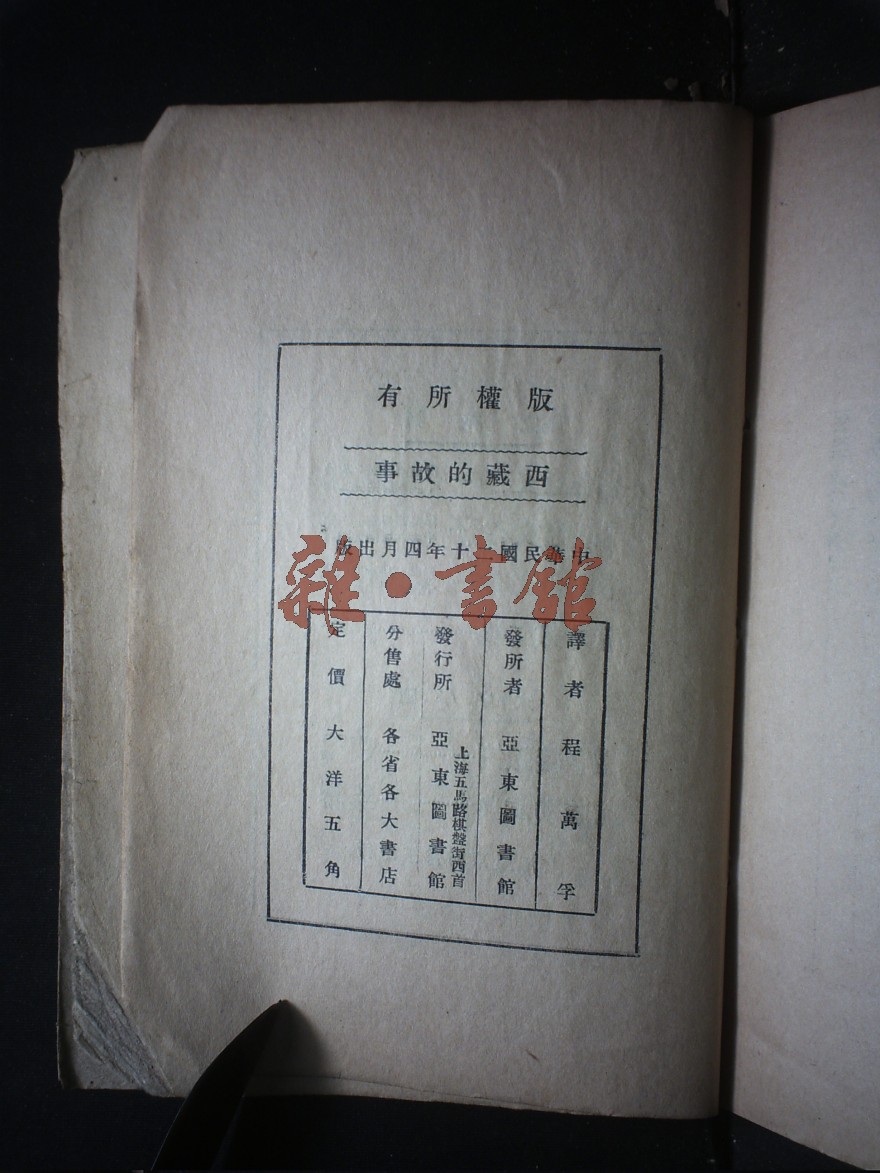 版權所有
西藏的故事
中華民國二十年四月出版
雜·書館
譯者 程萬孚
發所者 亞東圖書館
發行所 上海五馬路棋盤街西首
亞東圖書館
分售處 各省各大書店
定價 大洋五角